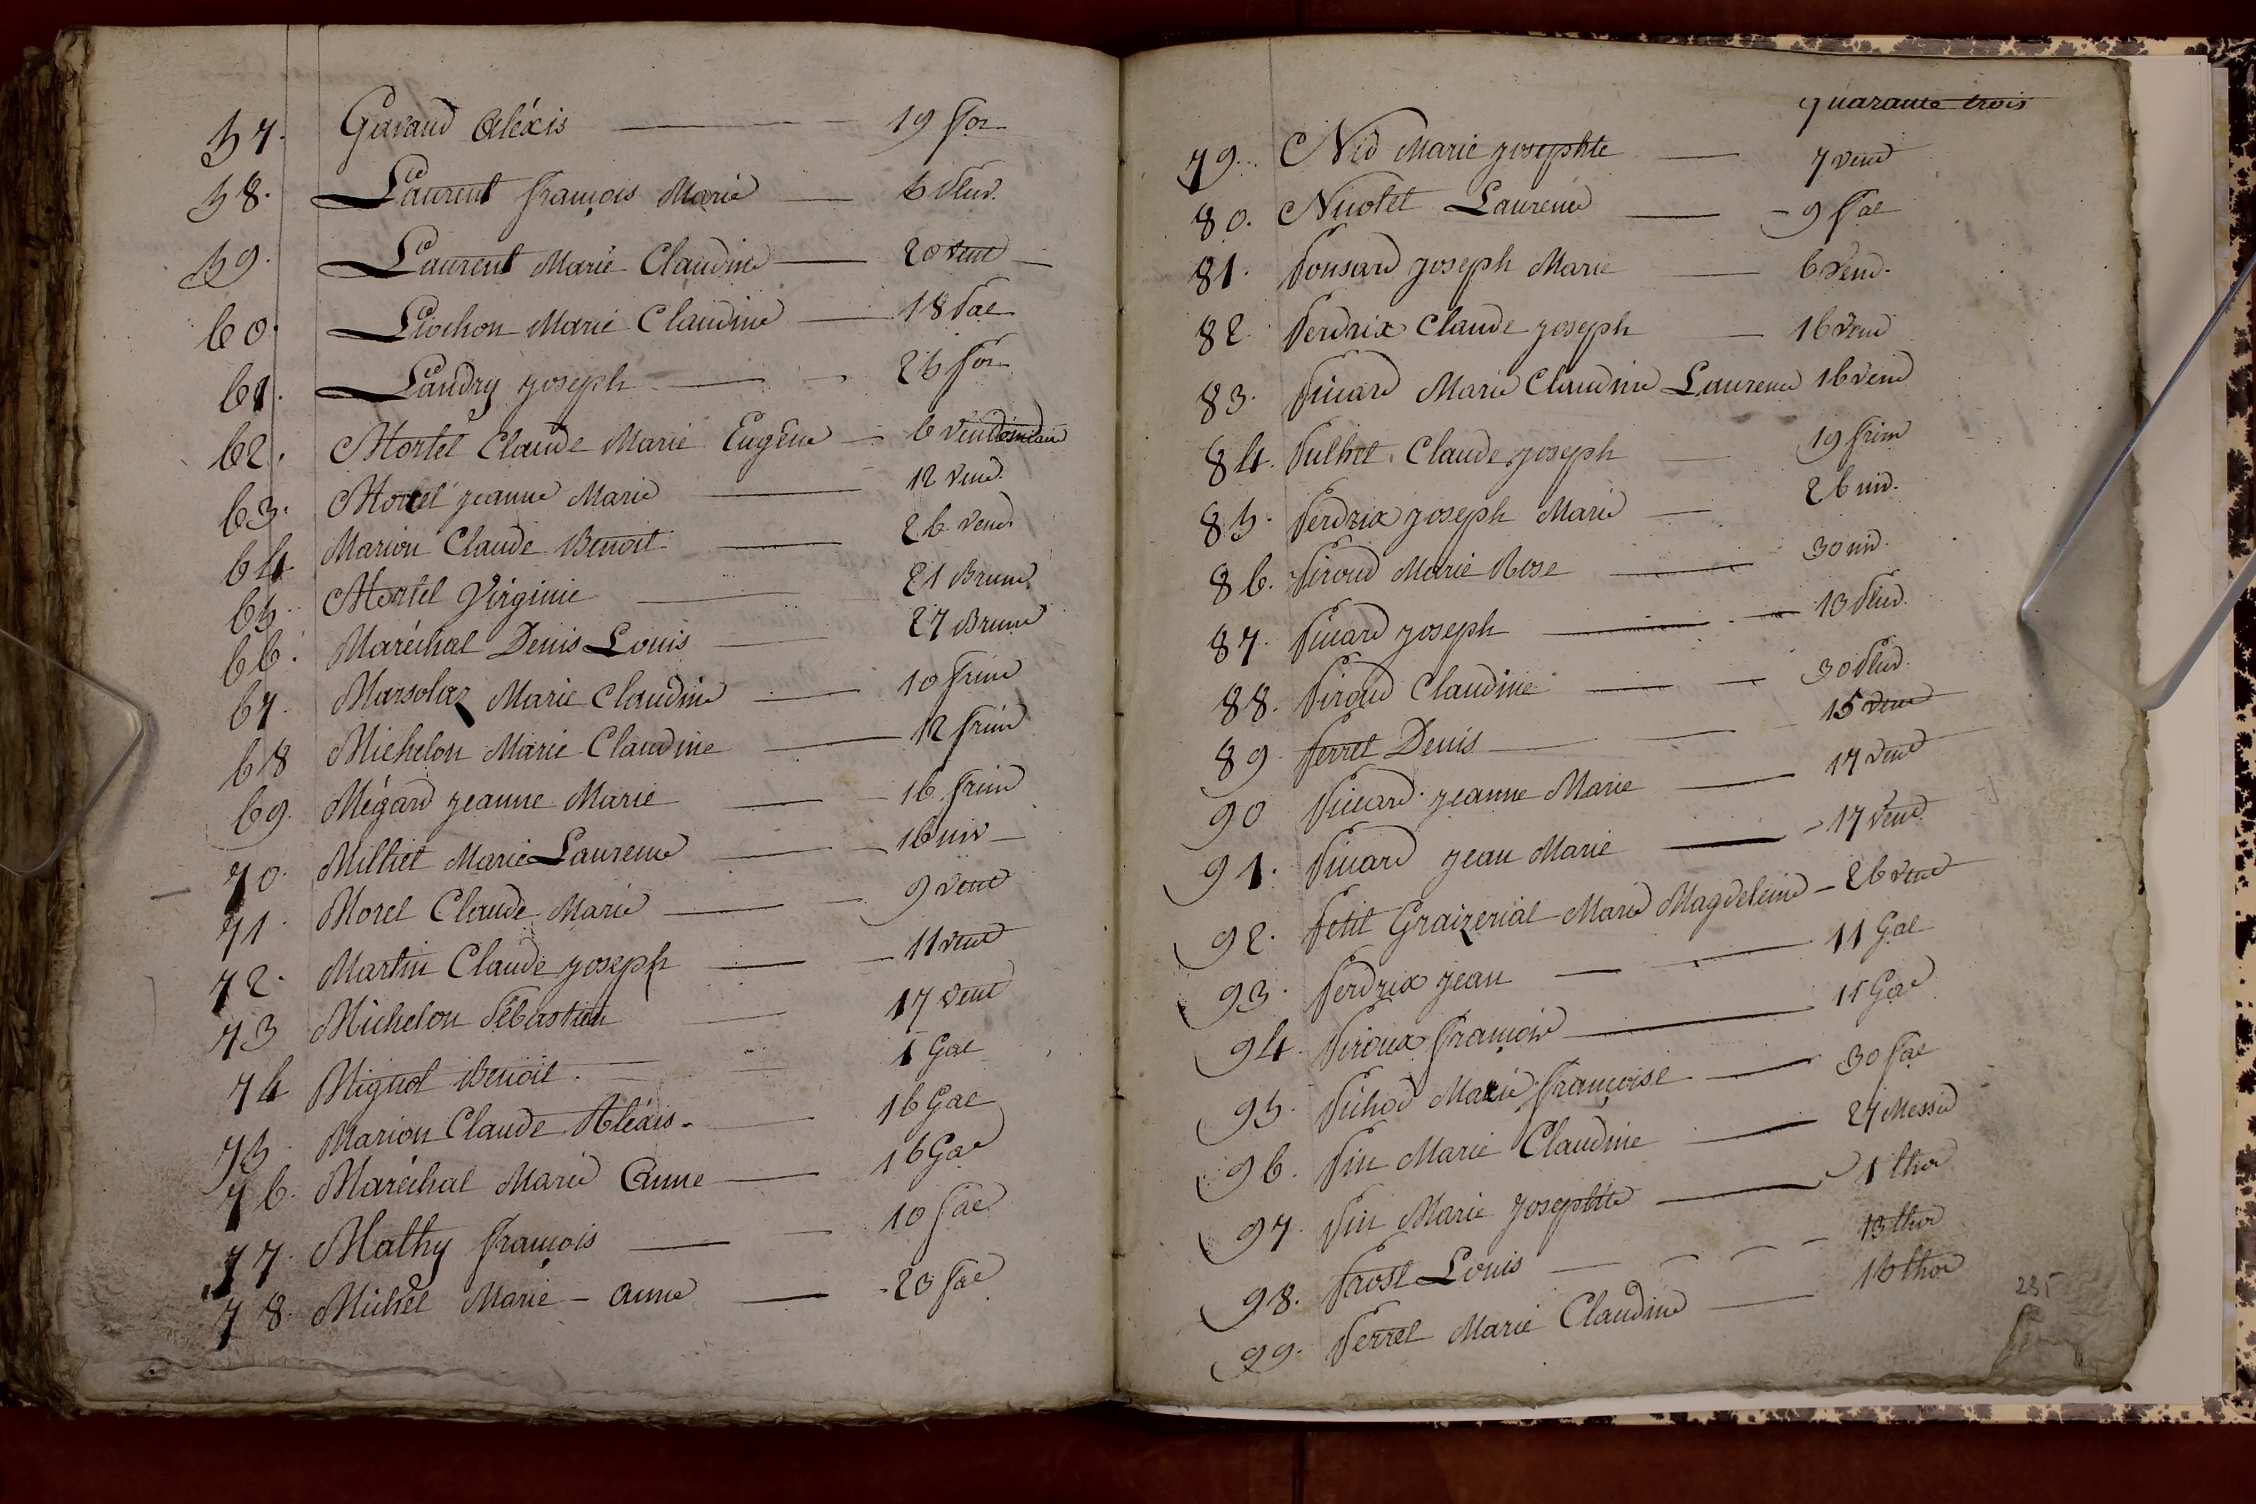 57. Gavand Aléxis 19 flor
58. Laurent françois Marie 5 pluv.
59. Laurent Marie Claudine 20 vent
60. Liochon Marie Claudine 18 vae
61. Landry joseph 25 flor
62. Mortel Claude Marie Eugène 6 vendemiair
63. Mortel jeanne Marie 12 vend.
64 Marion Claude Benoit 26 vend
65. Mortel Virginie 21 Brum
66. Maréchal Denis Louis 27 Brum
67. Marsolaz Marie Claudine 10 frim
68 Michelon Marie Claudine 12 frim
69. Mégard jeanne Marie 16 frim
70. Milliet Marie Laurence 16 niv
71. Morel Claude Marie 9 vent
72. Martin Claude joseph 11 vent
73 Michelon Sébastien 17 vent
74 Mignot Benoit 1 Gal
75 Marion Claude Aléxis 16 Gal
76. Maréchal Marie Anne 16 Gal
77. Mathy françois 10 fae
78. Michel Marie-anne 23 fae
quarante trois
79. Nid Marie josephte 7 vend
80. Laurence 9 fae
81. Ponsard joseph Marie 6 vend.
82. Perdrix Claude joseph 16 vend
83. Picard Marie Claudine Laurence 16 vend
84. Pulliet Claude joseph 19 frim
85. Perdrix joseph Marie 26 niv.
86. Piroud Marie Rose 30 niv.
87. Picard joseph 13 pluv.
88. Piroud Claudine 30 pluv.
89. Perret Denis 15 vent
90 Picard jeanne Marie 17 vent
91. Picard jean Marie 17 vent
92. Petit Marie Magdeleine 26 vent
93. Perdrix jean 11 Gal
94. Piroux françois 15 Gal
95. Pichod Marie françoise 30 fae
96. Pin Marie Claudine 27 Messid
97. Pin Marie josephte 1 ther
98. Prost Louis 13 ther
99. Perret Marie Claudine 16 ther
235